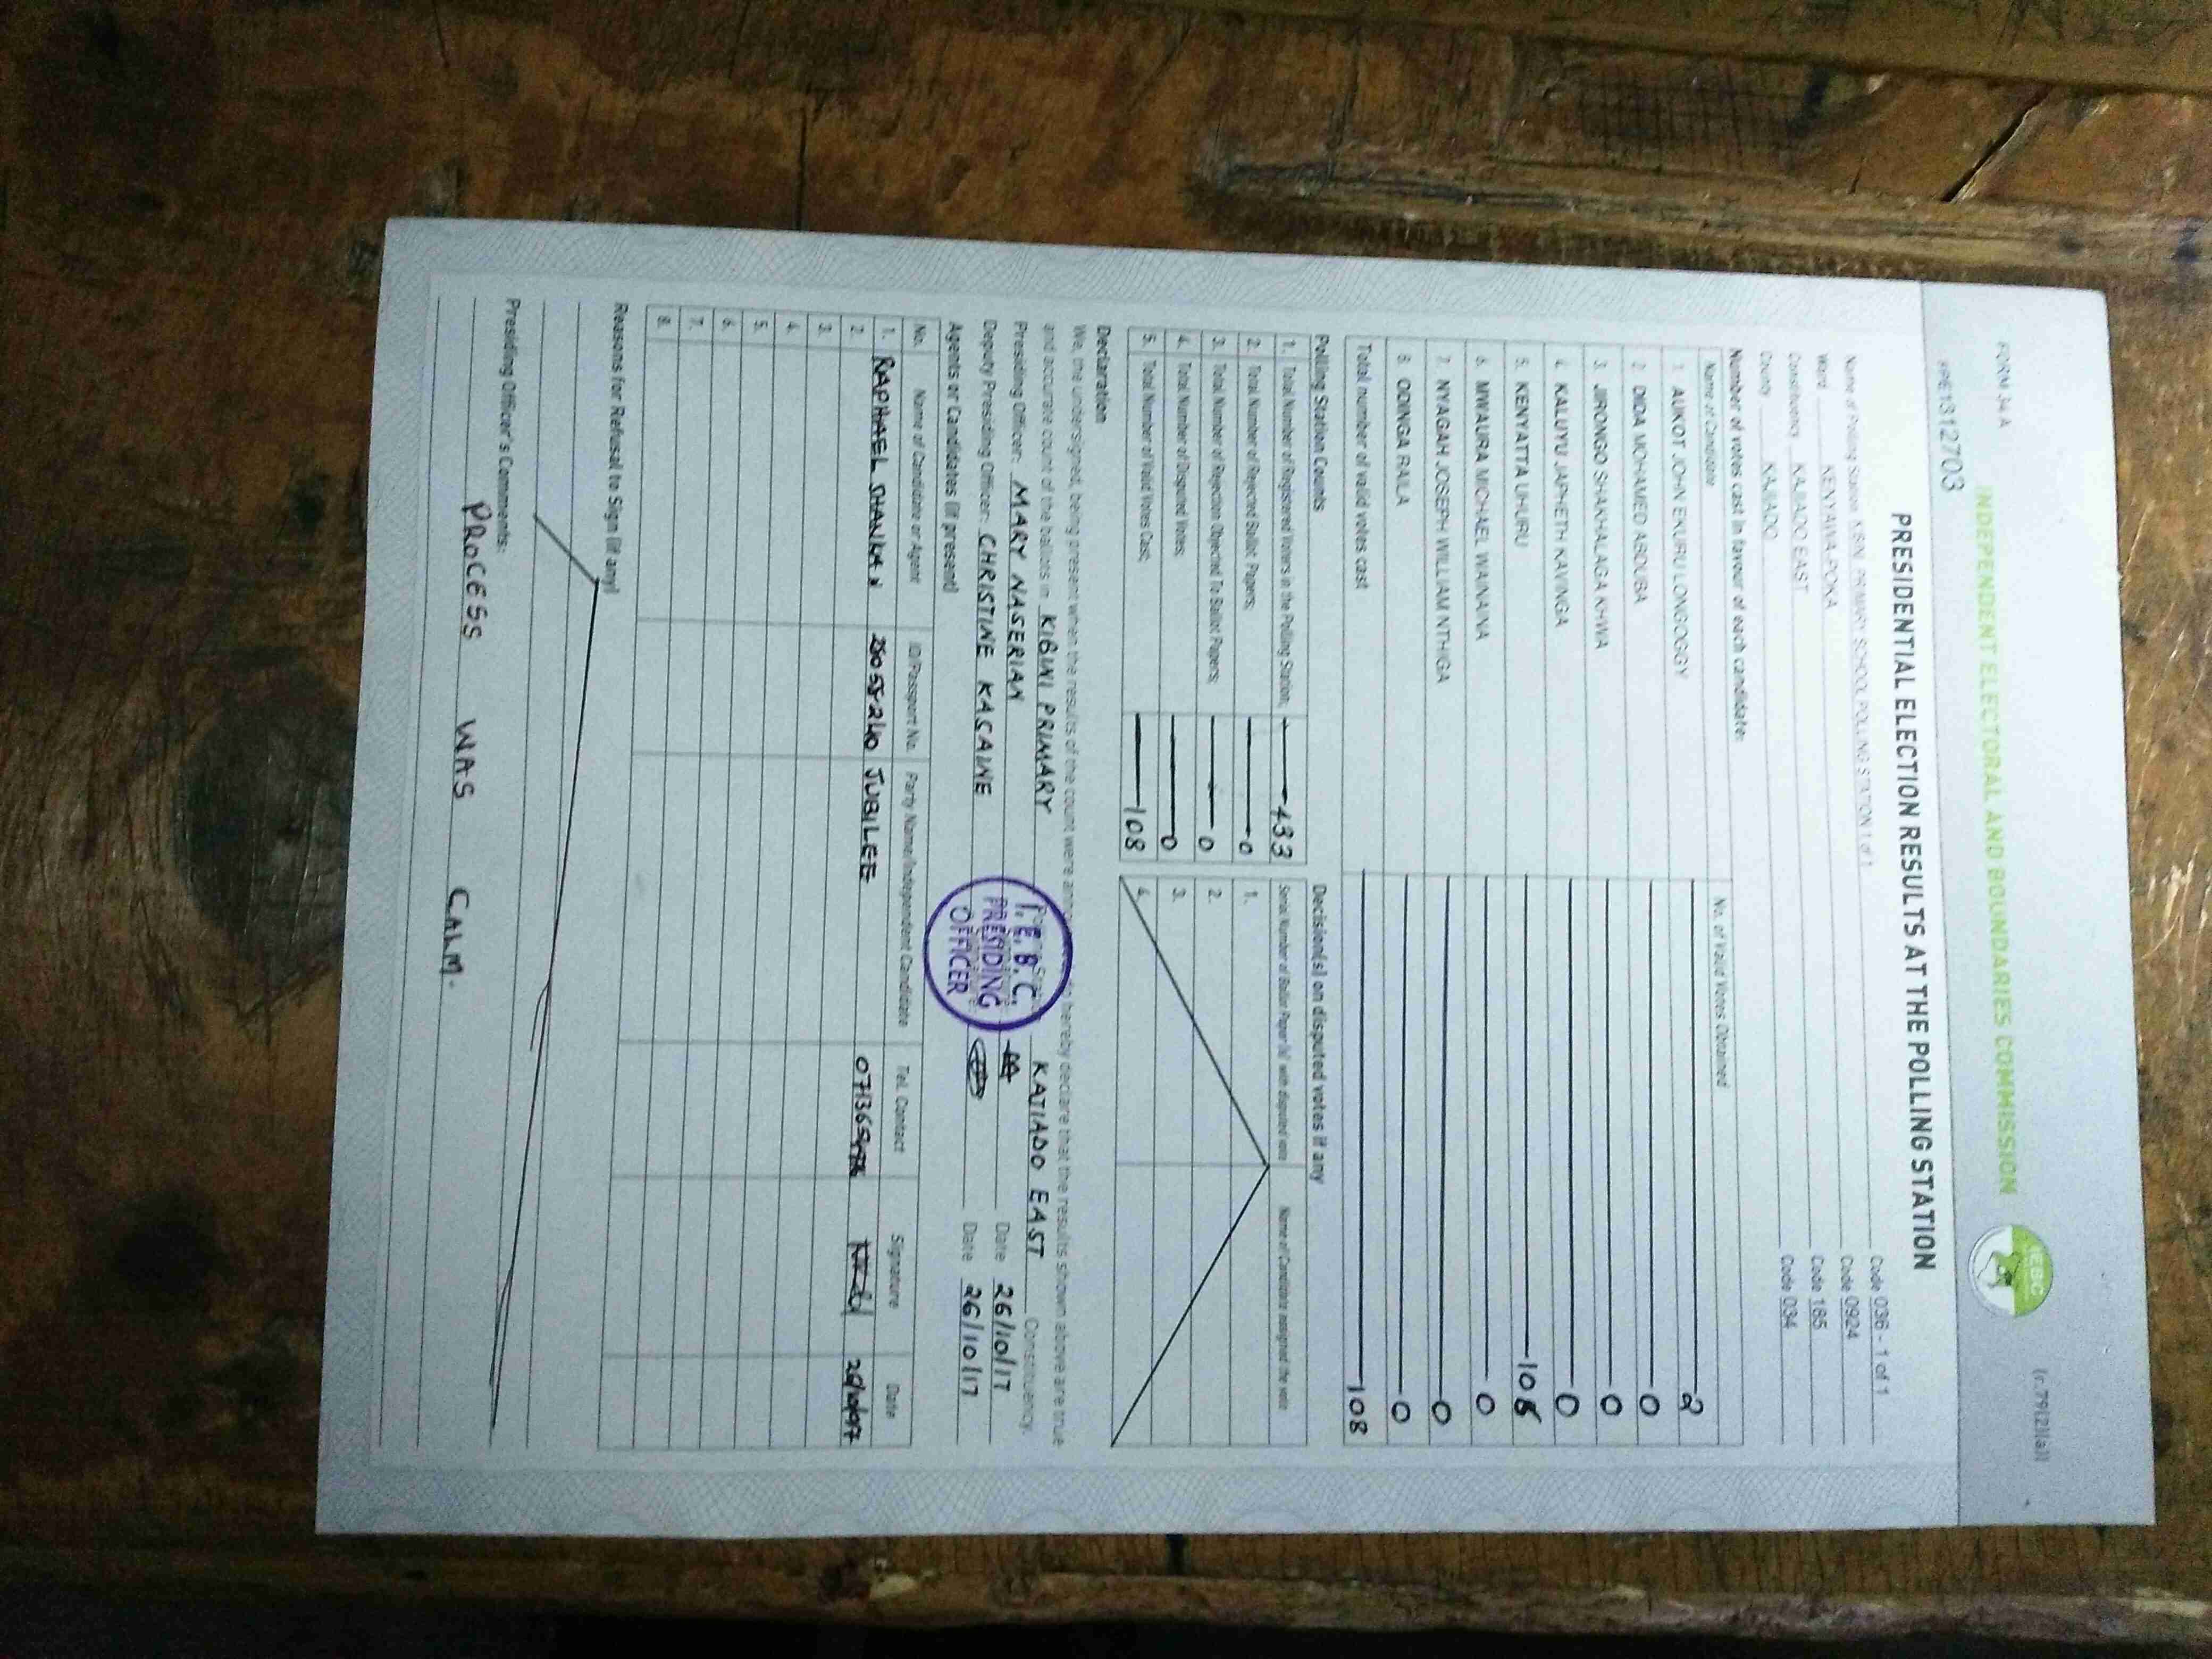 FORM 34 A
(r.79(2)(a))
INDEPENDENT ELECTORAL AND BOUNDARIES COMMISSION
IEBC
PRE1312703
PRESIDENTIAL ELECTION RESULTS AT THE POLLING STATION
Name of Polling Station KIBINI PRIMARY SCHOOL POLLING STATION 1 of 1 Code 036 - 1 of 1
Ward KENYAWA-POKA Code 0924
Constituency KAJIADO EAST Code 185
County KAJIADO Code 034
Number of votes cast in favour of each candidate:
Name of Candidate No. of Valid Votes Obtained
1. AUKOT JOHN EKURU LONGOGGY 2
2. DIDA MOHAMED ABDUBA 0
3. JIRONGO SHAKHALAGA KHWA 0
4. KALUYU JAPHETH KAVINGA 0
5. KENYATTA UHURU
6. MWAURA MICHAEL WAINAINA 0
7. NYAGAH JOSEPH WILLIAM NTHIGA 0
8. ODINGA RAILA 0
Total number of valid votes cast 108
Polling Station Counts
1. Total Number of Registered Voters in the Polling Station; 433
2. Total Number of Rejected Ballot Papers; 0
3. Total Number of Rejection Objected To Ballot Papers; 0
4. Total Number of Disputed Votes; 0
5. Total Number of Valid Votes Cast; 108
Decision(s) on disputed votes if any
Serial Number of Ballot Paper (s) with disputed vote Name of Candidate assigned the vote
1.
2.
3.
4.
Declaration
We, the undersigned, being present when the results of the count were hereby declare that the results shown above are true
and accurate count of the ballots in KIBINI PRIMARY KATIADO EAST Constituency.
Presiding Officer: MARY NASERIAN Date 26/10/17
Deputy Presiding Officer: CHRISTINE KASAINE Date 26/10/17
I.E.B.C.
PRESIDING
OFFICER
Agents or Candidates (if present)
No. Name of Candidate or Agent ID/Passport No. Party Name/Independent Candidate Tel. Contact Signature Date
1. RAPHAEL JUBILEE
2.
3.
4.
5.
6.
7.
8.
Reasons for Refusal to Sign (if any)
Presiding Officer's Comments:
PROCESS WAS CALM.